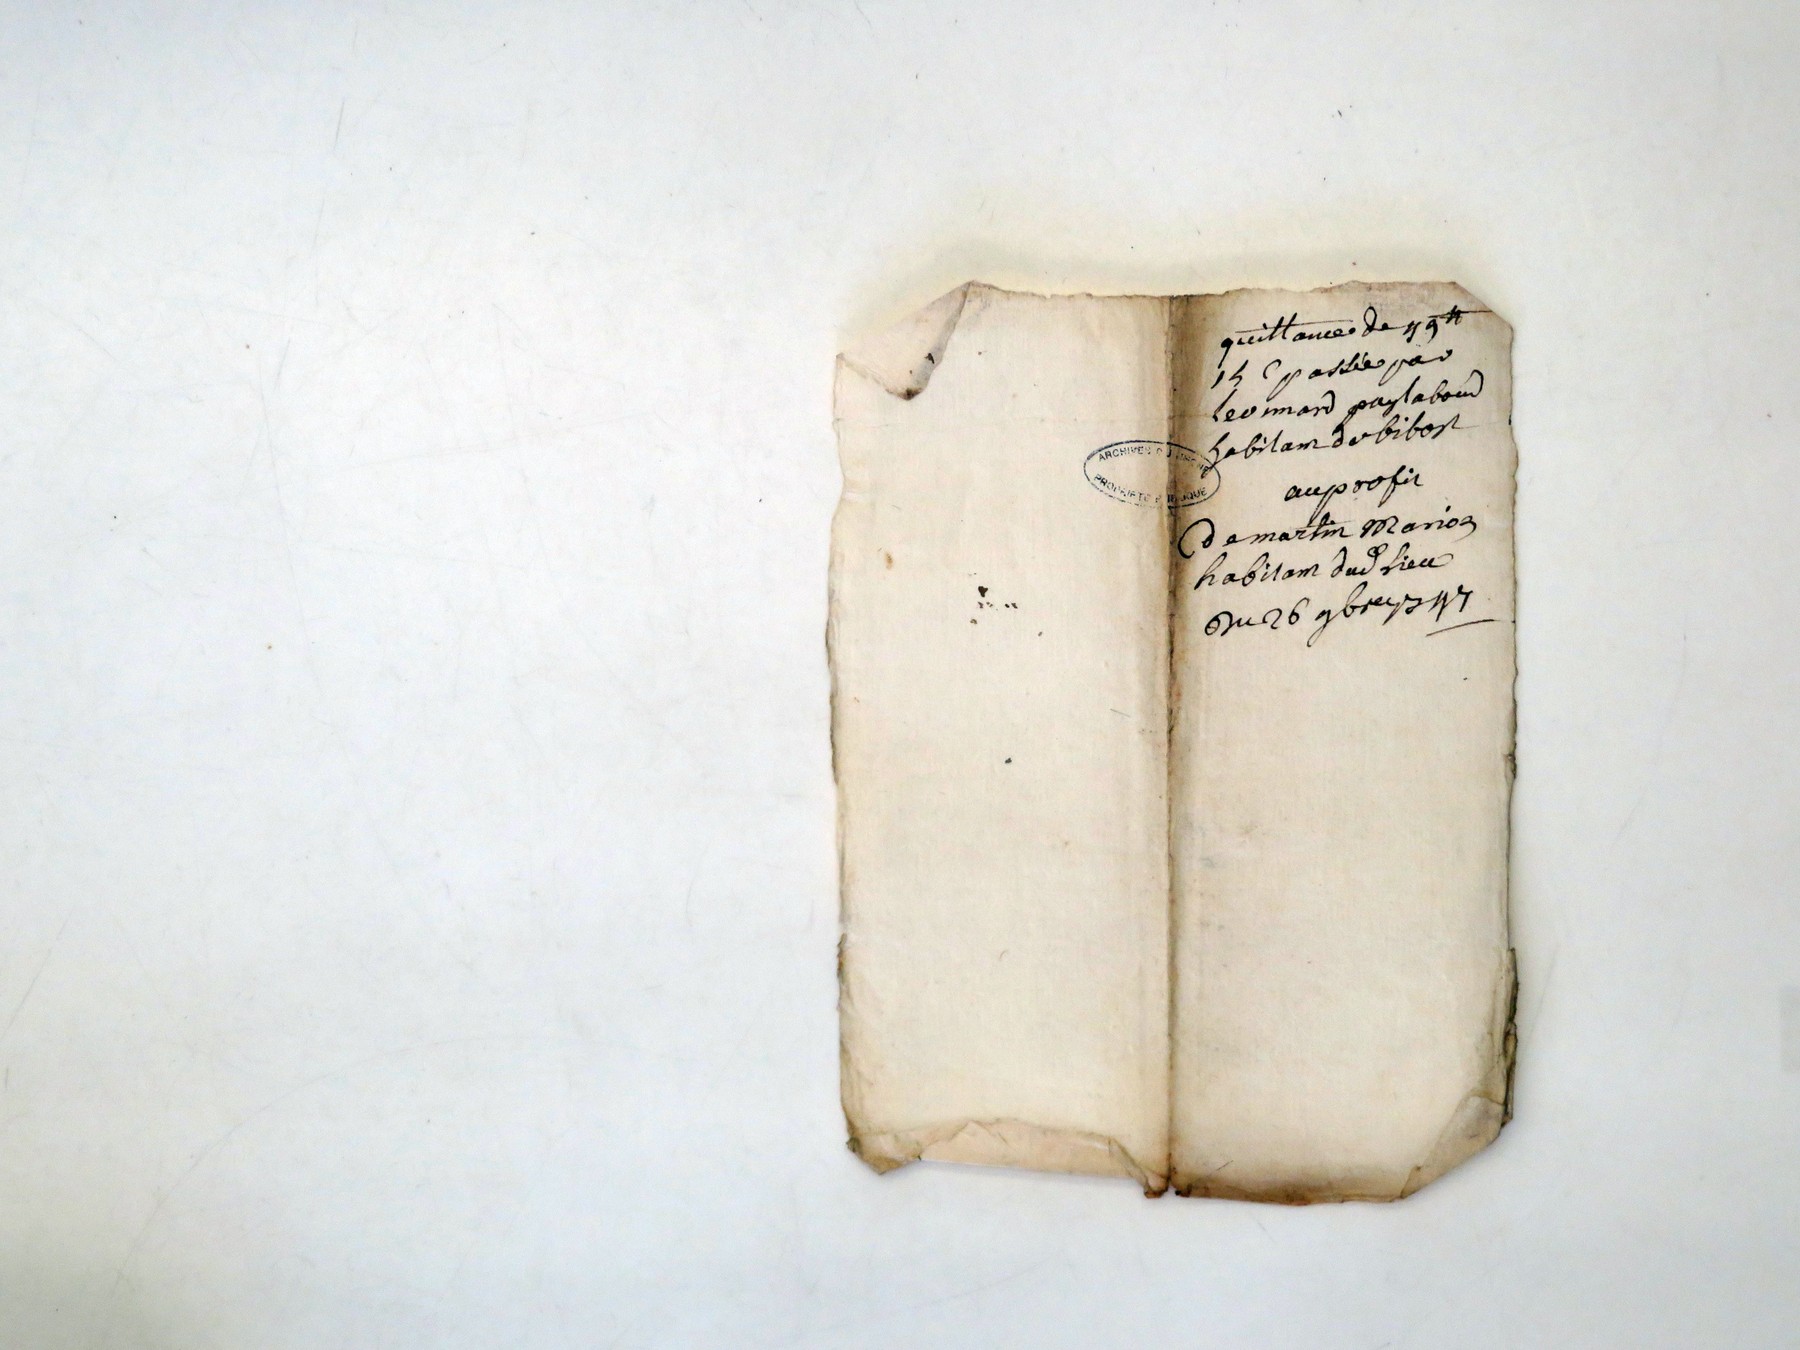 quittance de 49ᵗᵗ
15 s passée par
leonnard puylaboud
habitant de bibost
au profit
De martin Marion
habitant dud lieu
Du 26 9bre 1747
ARCHIVES DU RHÔNE
PROPRIÉTÉ PUBLIQUE